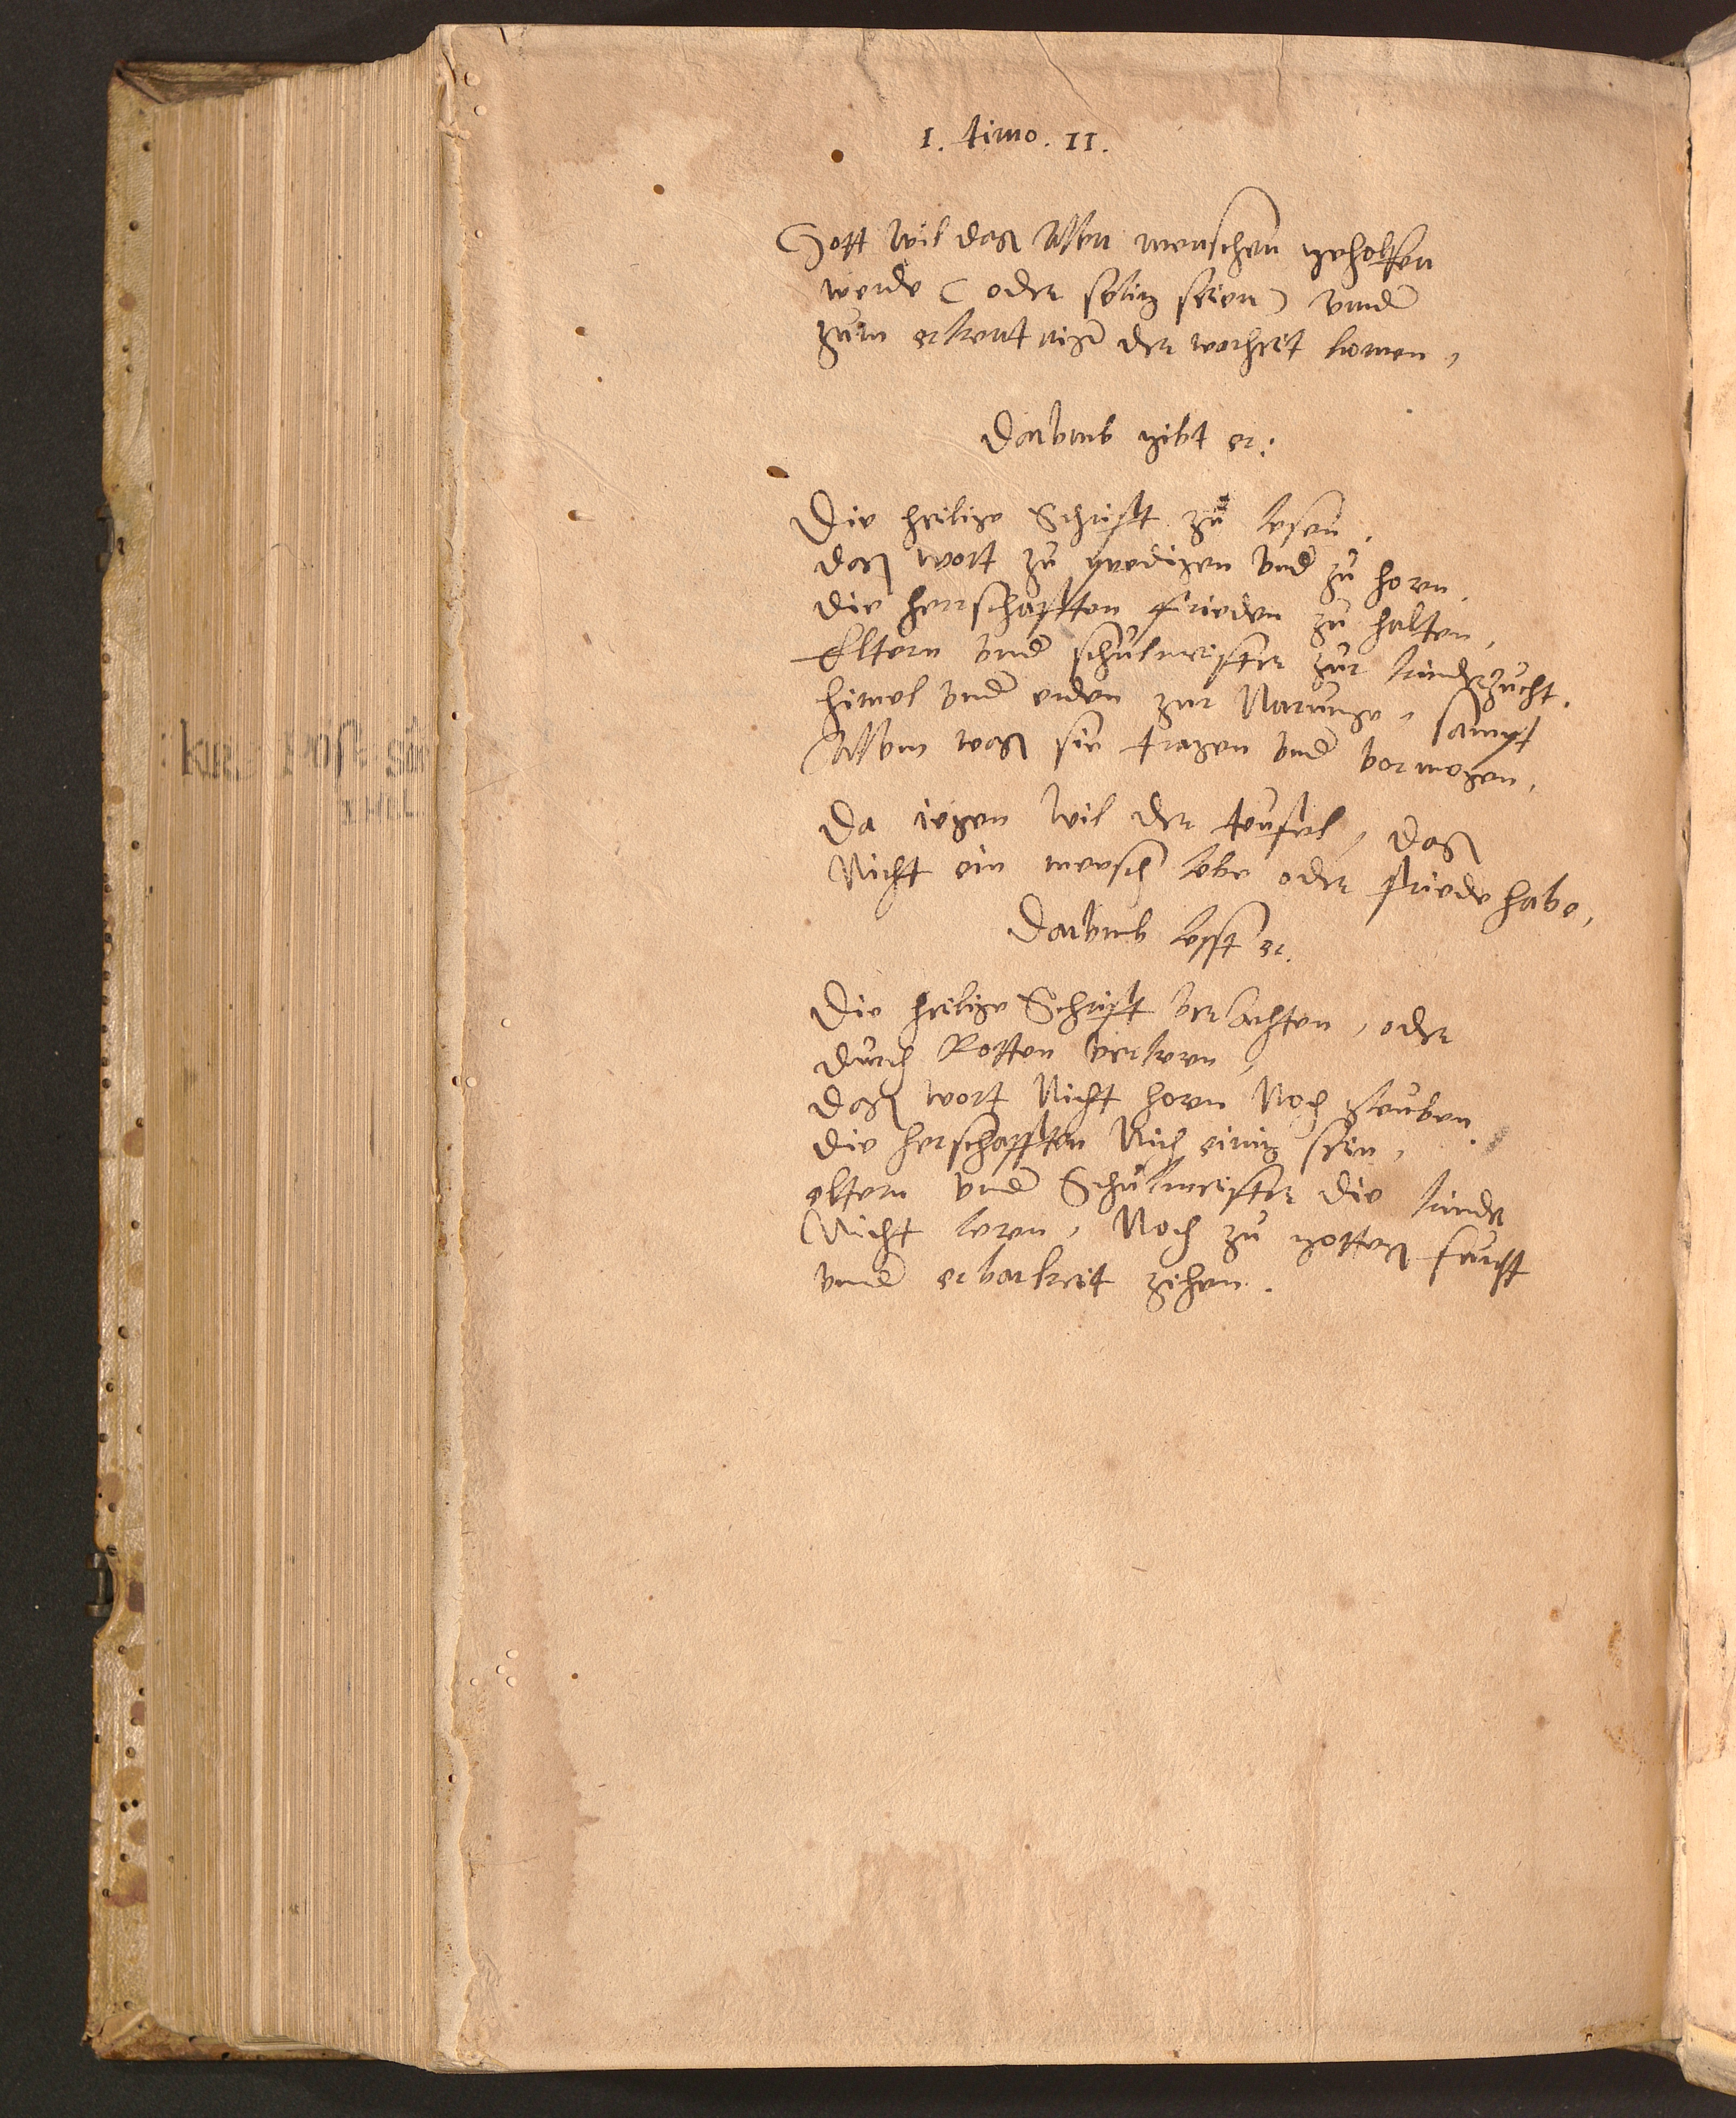 1. timo. II.
Gott wil das Allen menschen geholfen
werde ( oder selig seien ) vnnd
zum erkentnis der warheit komen,
Darumb gibt er:
Die heilige Schrifft zu lesen.
das wort zu predigen vnd zu horen.
die herrschafften frieden zu halten,
Eltern vnnd schulmeister zur kinderzucht.
himel vnnd erden zur Narunge, sampt
Allem was sie tragen vnnd vormogen,
Da iegen wil der teufel, das
Nicht ein mensch lebe oder friede habe,
Darumb lesst er.
Die heilige Schrifft verachten, oder
durch Rotten verkeren,
das wort Nicht horen Noch gleuben.
die herschafften Nich einig sein,
eltern vnnd Schulmeister die kinder
Nicht leren, Noch zu gottes furcht
vnnd erbarkeit zihen.